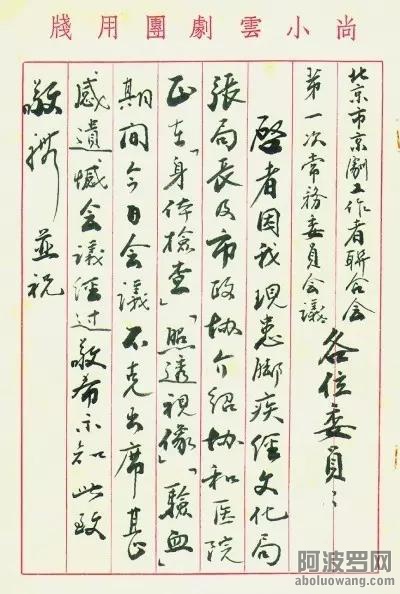 尚小雲劇團用牋
北京市京劇工作者聯合会
第一次常務委員会議
各位委員：
啓者因我現患脚疾经文化局
張局長及市政协介绍协和医院
正在「身体檢查」「照透視像」「驗血」
期间今日会議不克出席甚
感遺憾会議经过敬希示知此致
敬礼 並祝
阿波罗网
aboluowang.com